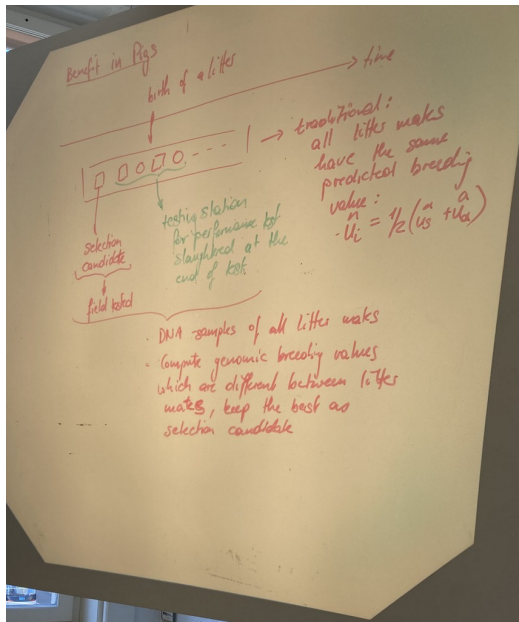 Benefit in Pigs
birth of a litter
time
traditional:
all litter mates
have the same
predicted breeding
value:
û_i = 1/2 (û_s + û_d)
selection
candidate
field tested
testing station
for performance test
slaughtered at the
end of test
· DNA-samples of all litter mates
· Compute genomic breeding values
which are different between litter
mates, keep the best as
selection candidate